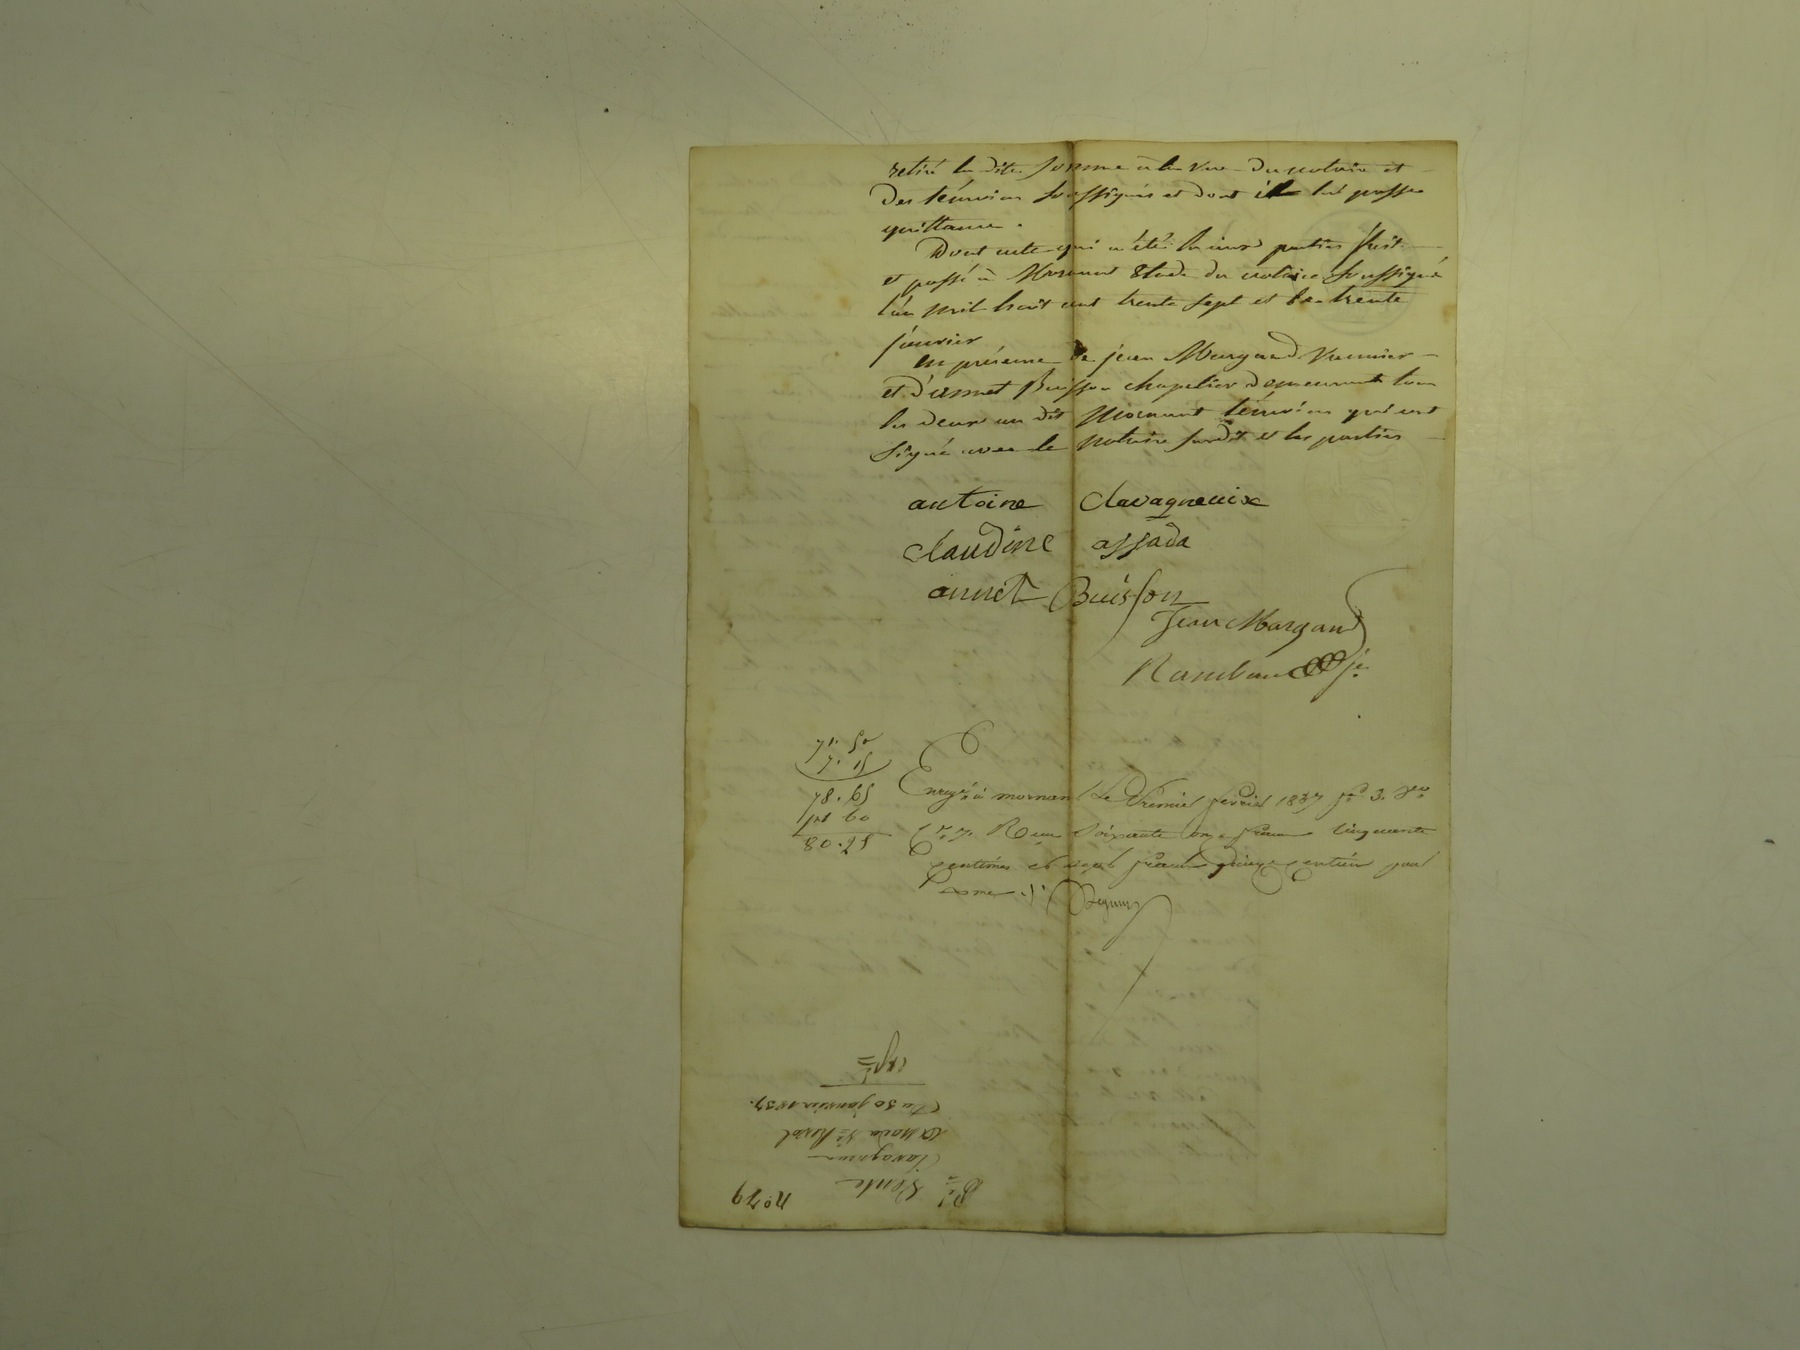 retiré la dite somme à la vue du notaire et
des témoins soussignés et dont il lui passe
quittance.
Dont acte qui a été lu aux parties fait
et passé à Mornant Etude du notaire soussigné
l'an mil huit cent trente sept et le trente
janvier
en présence de jean Margand
et d'annet Buisson chapelier demeurant tous
les deux au dit Mornant témoins qui ont
signé avec le notaire susdit et les parties
antoine Clavagneuix
Claudine assada
annet Buisson
Jean Margand
Rambaud je.
71. 50
7. 15
78. 65
1 60
80. 25
Enregé à mornant Le Premier fevrier 1837 fo. 3. Vo.
Reçu Soixante onze francs Cinquante
centimes et sept francs quinze centimes pour
no. 79
Vente
Clavagneux
assada
Du 30 janvier 1837.
expée